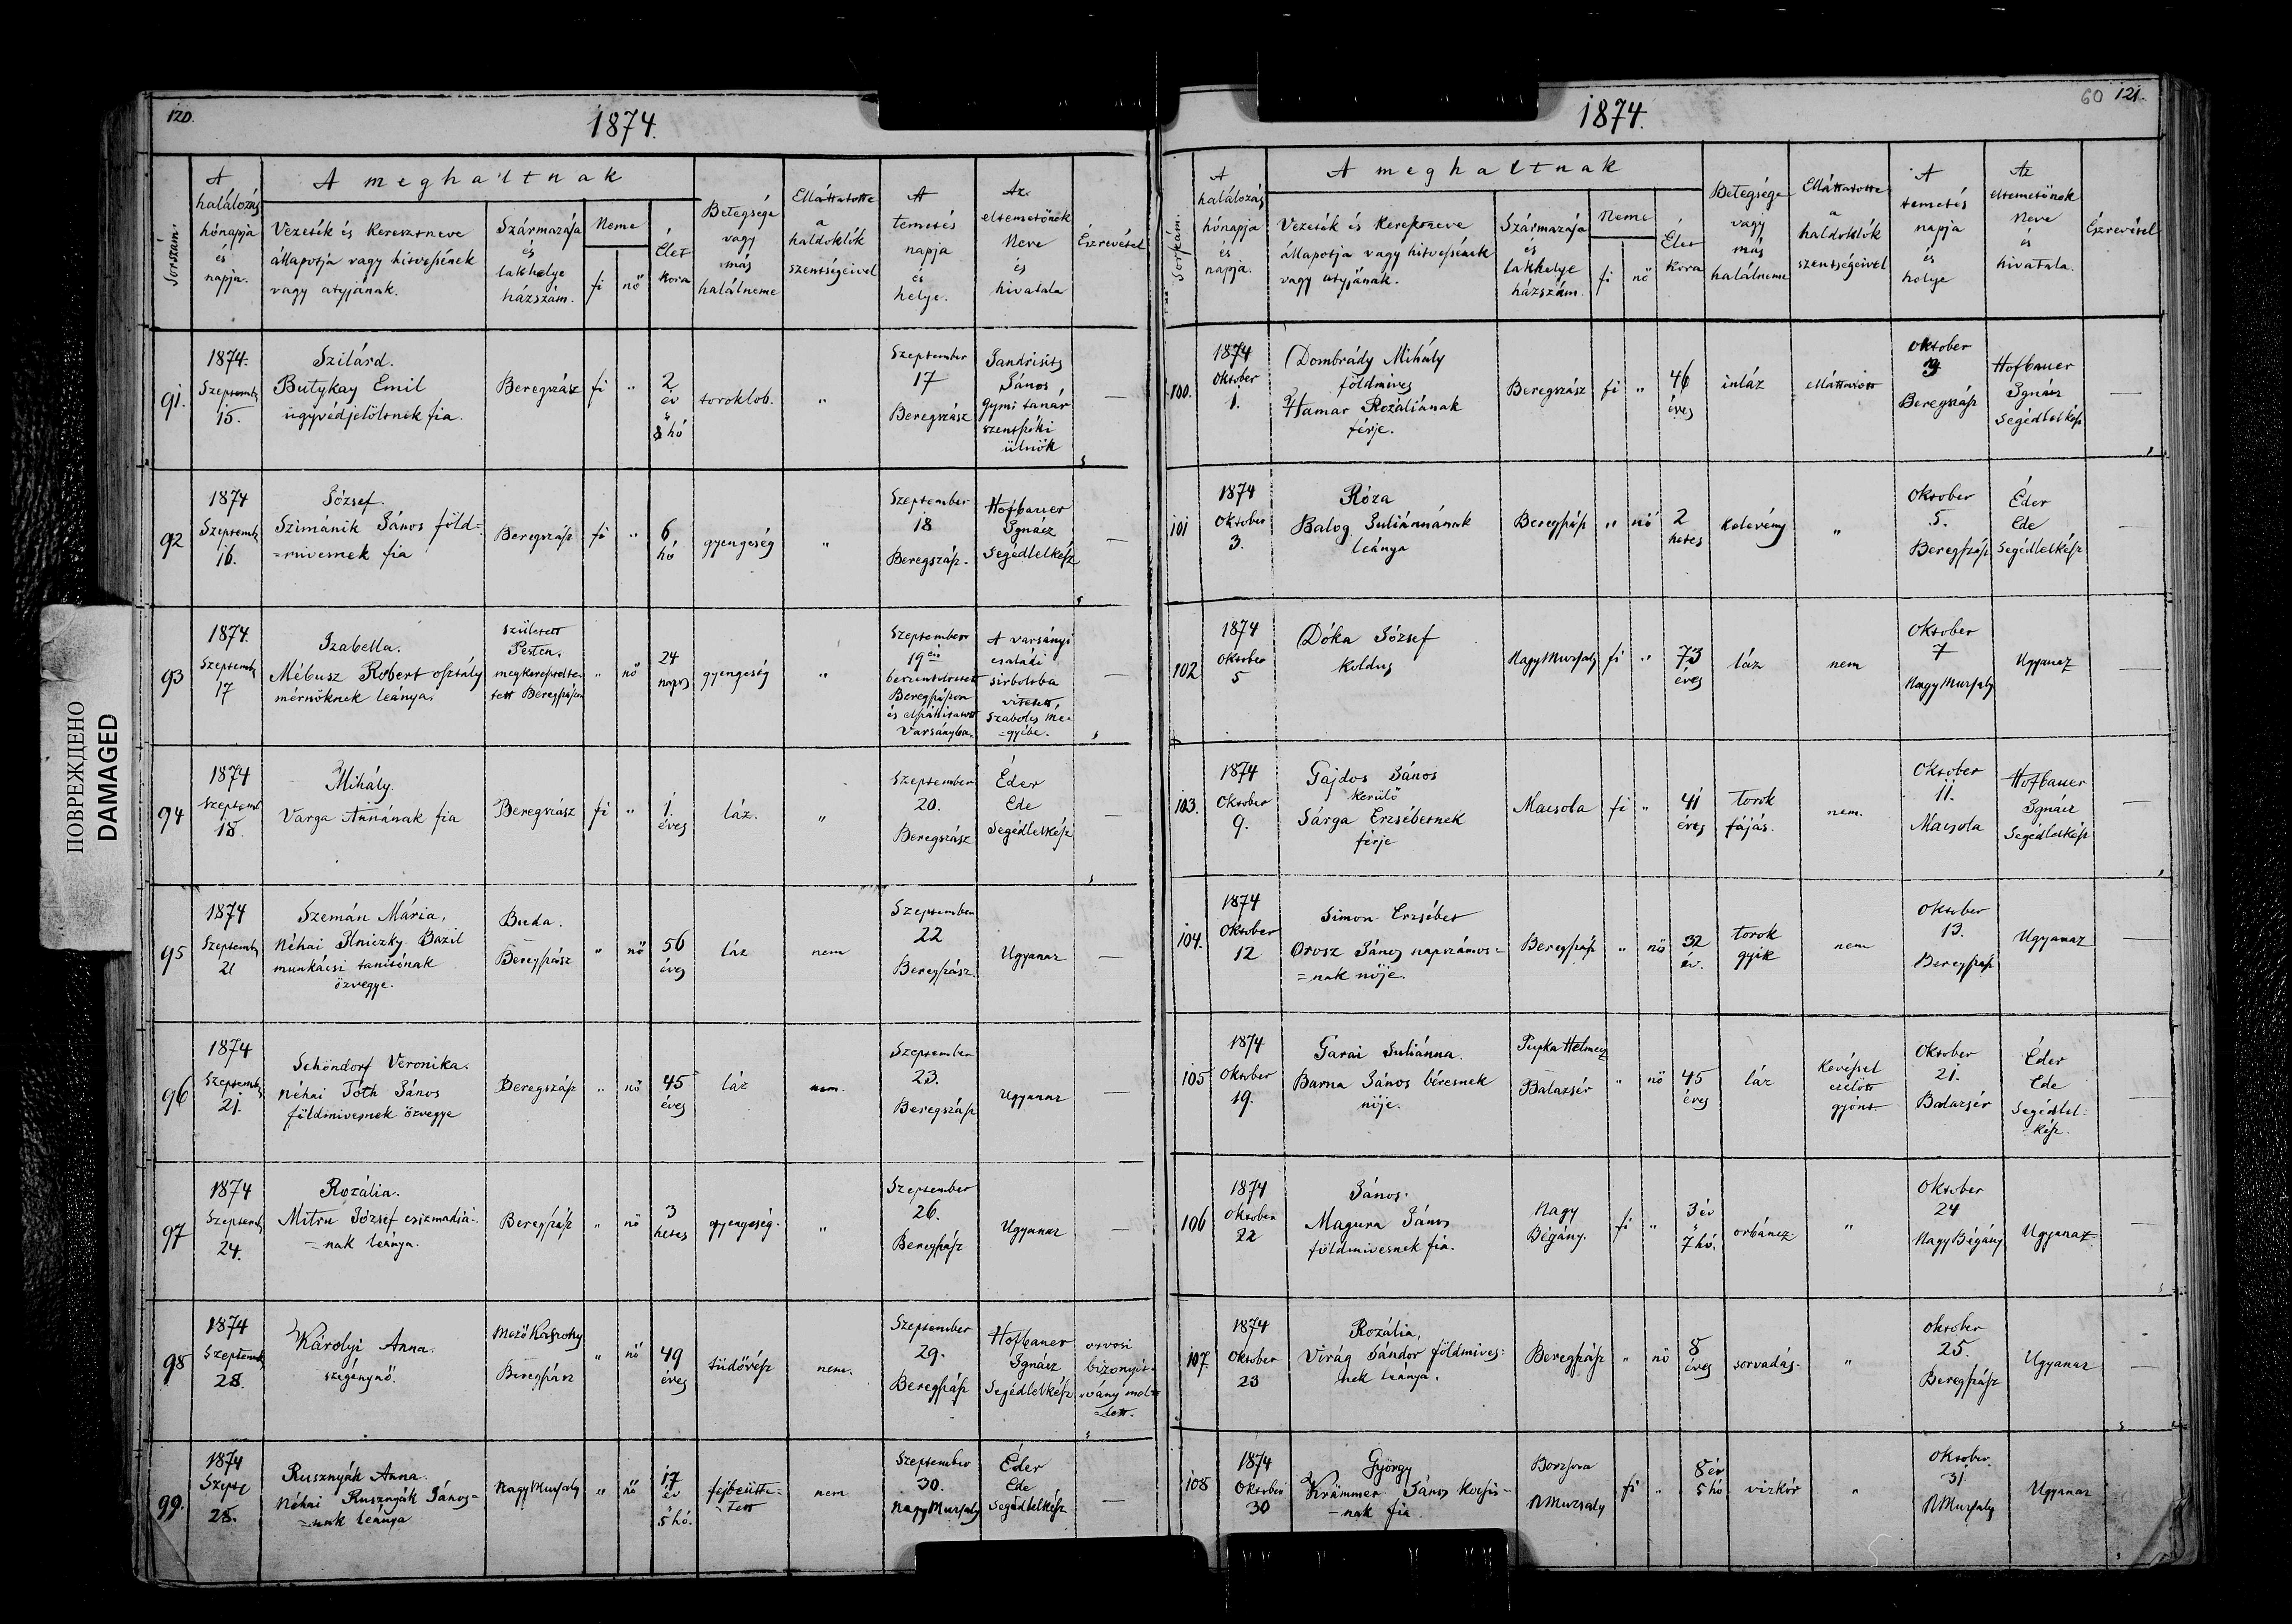 120.
1874.
Sorszám.
A halálozás hónapja és napja.
A meghaltnak
Vezeték és Keresztneve
állapotja vagy hitvesének
vagy atyjának.
Származása
és
lakhelye
házszám.
Neme
fi
nö
Élet
kora
Betegsége
vagy
más
halálneme
Elláttatotte
a
haldoklók
szentségeivel
A
temetés
napja
és
helye.
Az
eltemetőnök
Neve
és
hivatala
Észrevétel
91.
1874.
Szeptemb.
15.
Szilárd.
Butykay Emil
ügyvédjelöltnek fia.
Beregszász
fi
"
2
év
s
8 hó
toroklob.
"
Szeptember
17
Beregszász
Jandrisits
János
gymi tanár
szentszéki
ülnök
—
92
1874
Szeptemb.
16.
József.
Szimánik János föld=
=mivesnek fia
Beregszász
fi
"
6
hó
gyengeség
"
Szeptember
18
Beregszász.
Hofbauer
Ignácz
Segédlelkész
—
93
1874.
Szeptemb.
17
Izabella.
Mébusz Robert osztály
mérnöknek leánya.
született
Pesten.
megkeresztelte-
tett Beregszászon
"
nö
24
napos
gyengeség
"
Szeptember
19én
beszenteltetett
Beregszászon
és elszállitatott
Varsányba.
A varsányi
családi
sirboltba
vitetett
Szabolcs me-
=gyébe.
—
94
1874
Szeptemb.
18.
Mihály.
Varga Annának fia
Beregszász
fi
"
1.
éves
láz.
"
Szeptember
20.
Beregszász
Éder
Ede
Segédlelkész
—
95
1874
Szeptemb.
21
Szemán Mária,
Néhai Ilniczky Bazil
munkácsi tanitónak
özvegye.
Buda.
Beregszász
"
nö
56
éves
láz
nem
Szeptember
22
Beregszász
Ugyanaz
—
96
1874
Szeptemb.
21.
Schöndorf Veronika.
Néhai Tóth János
földmivesnek özvegye
Beregszász
"
nö
45
éves
láz
nem.
Szeptember
23.
Beregszász
Ugyanaz
—
97
1874
Szeptemb.
24.
Rozália.
Mitru József csizmadiá-
=nak leánya.
Beregszász
"
nö
3
hetes
gyengeség.
"
Szeptember
26.
Beregszász
Ugyanaz
—
98
1874
Szeptemb.
28.
Károlyi Anna.
szegénynö.
Mezö Kaszony
Beregszász
"
nö
49
éves
tüdővész
nem.
Szeptember
29.
Beregszász
Hofbauer
Ignácz
Segédlelkész
orvosi
bizonyit-
vány mel-
=lett.
99.
1874
Szept
28.
Rusznyák Anna.
Néhai Rusznyák János-
=nak leánya
Nagy Muzsaly
"
nö
17
év
5 hó.
nem
Szeptember
30.
Nagy Muzsaly
Éder
Ede
Segédlelkész
—
60 121.
1874.
Sorszám.
A
halálozás
hónapja
és
napja.
A meghaltnak
Vezeték és Keresztneve
állapotja vagy hitvesének
vagy atyjának.
Származása
és
lakhelye
házszám.
Neme
fi
nö
Élet
kora
Betegsége
vagy
más
halálneme
Elláttatotte
a
haldoklók
szentségeivel
A
temetés
napja
és
helye
Az
eltemetőnök
Neve
és
hivatala.
Észrevétel
100.
1874
Oktober
1.
Dombrády Mihály
földmives
Hamar Rozáliának
férje.
Beregszász
fi
"
46
éves
inláz
elláttatott
Oktober
3
Beregszász
Hofbauer
Ignácz
Segédlelkész
—
101
1874
Oktober
3.
Róza
Balog Juliánnának
leánya
Beregszász
"
nö
2
hetes
kelevény
"
Oktober
5.
Beregszász
Éder
Ede
Segédlelkész
102
1874
Oktober
5
Dóka József
koldus
Nagy Muzsaly
fi
"
73
éves
láz
nem
Oktober
7
Nagy Muzsaly
Ugyanaz
103.
1874
Oktober
9.
Gajdos János
kerülö
Sárga Erzsébetnek
férje
Macsola
fi
"
41
éves
torok
fájás.
nem.
Oktober
11.
Macsola
Hofbauer
Ignácz
Segédlelkész
—
104.
1874
Oktober
12
Simon Erzsébet
Orosz János napszámos-
=nak nöje.
Beregszász
"
nö
32
év.
torok
gyik
nem
Oktober
13.
Beregszász
Ugyanaz
—
105
1874
Oktober
19.
Garai Juliánna.
Barna János béresnek
nöje.
Balazsér
"
nö
45
éves
láz
Kevéssel
ezelött
gyónt
Oktober
21.
Balazsér
Éder
Ede
Segédlel-
=kész.
—
106
1874
Oktober
22
János.
Magura János
földmivesnek fia.
Nagy
Bégány.
fi
"
3 év
s
7 hó.
orbáncz
"
Oktober
24
Nagy Bégány
Ugyanaz
—
107.
1874
Oktober
23
Rozália,
Virág Sándor földmives-
nek leánya.
Beregszász
"
nö
8
éves
sorvadás.
"
Oktober
25.
Beregszász
Ugyanaz
—
108
1874
Oktober
30
György
Krämmer János kocsis-
=nak fia
Borzsova
N Muzsaly
fi
"
8 év
5 hó
vizkór
"
Oktober.
31.
N Muzsaly
Ugyanaz
ПОВРЕЖДЕНО
DAMAGED